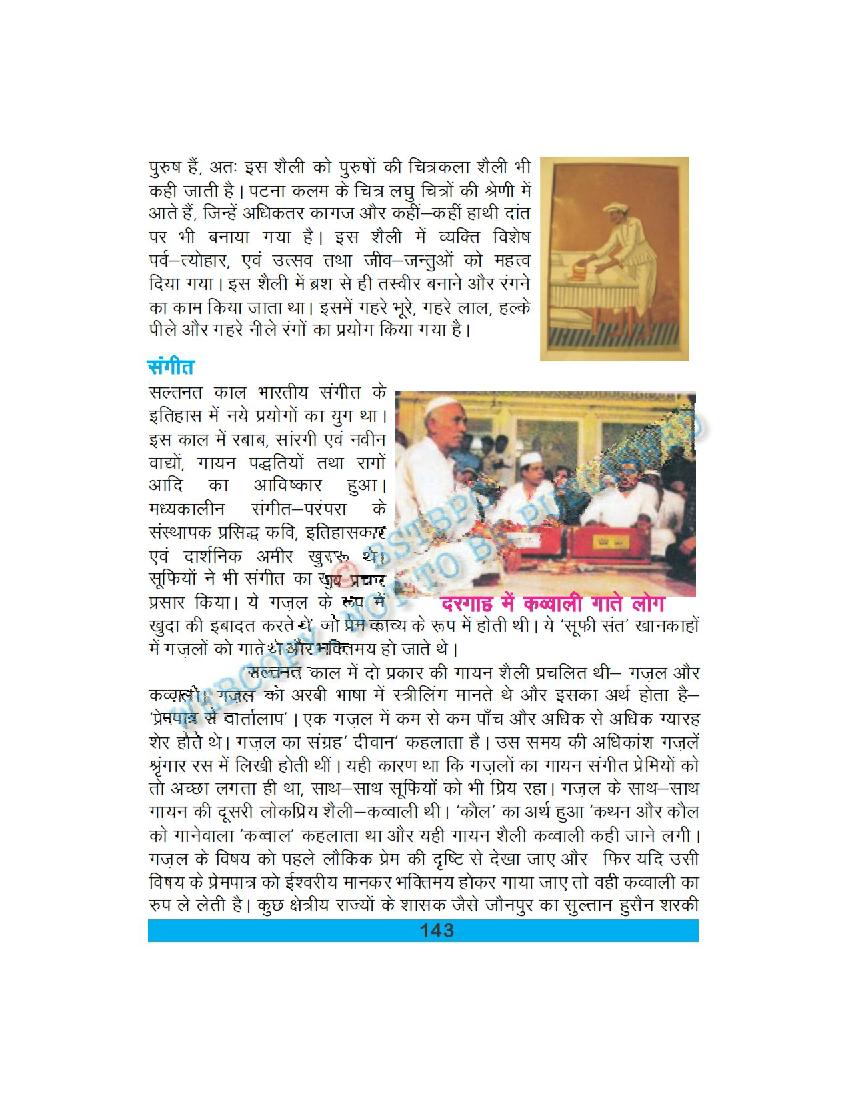 पुरुष हैं, अतः इस शैली को पुरुषों की चित्रकला शैली भी
कही जाती है। पटना कलम के चित्र लघु चित्रों की श्रेणी में
आते हैं, जिन्हें अधिकतर कागज और कहीं–कहीं हाथी दांत
पर भी बनाया गया है। इस शैली में व्यक्ति विशेष
पर्व–त्योहार, एवं उत्सव तथा जीव–जन्तुओं को महत्व
दिया गया। इस शैली में ब्रश से ही तस्वीर बनाने और रंगने
का काम किया जाता था। इसमें गहरे भूरे, गहरे लाल, हल्के
पीले और गहरे नीले रंगों का प्रयोग किया गया है।
संगीत
सल्तनत काल भारतीय संगीत के
इतिहास में नये प्रयोगों का युग था।
इस काल में रबाब, सांरगी एवं नवीन
वाद्यों, गायन पद्धतियों तथा रागों
आदि का आविष्कार हुआ।
मध्यकालीन संगीत–परंपरा के
संस्थापक प्रसिद्ध कवि, इतिहासकार
एवं दार्शनिक अमीर खुसरू थे।
सूफियों ने भी संगीत का खुब प्रचार
प्रसार किया। ये गज़ल के रूप में
दरगाह में कव्वाली गाते लोग
खुदा की इबादत करते थे' जो प्रेम काव्य के रूप में होती थी। ये 'सूफी संत' खानकाहों
में गज़लों को गाते थे और भक्तिमय हो जाते थे।
सल्तनत काल में दो प्रकार की गायन शैली प्रचलित थी– गज़ल और
कव्वाली। गज़ल को अरबी भाषा में स्त्रीलिंग मानते थे और इसका अर्थ होता है–
'प्रेमपात्र से वार्तालाप'। एक गज़ल में कम से कम पाँच और अधिक से अधिक ग्यारह
शेर होते थे। गज़ल का संग्रह' दीवान' कहलाता है। उस समय की अधिकांश गज़लें
श्रृंगार रस में लिखी होती थीं। यही कारण था कि गज़लों का गायन संगीत प्रेमियों को
तो अच्छा लगता ही था, साथ–साथ सूफियों को भी प्रिय रहा। गज़ल के साथ–साथ
गायन की दूसरी लोकप्रिय शैली–कव्वाली थी। 'कौल' का अर्थ हुआ 'कथन और कौल
को गानेवाला 'कव्वाल' कहलाता था और यही गायन शैली कव्वाली कही जाने लगी।
गज़ल के विषय को पहले लौकिक प्रेम की दृष्टि से देखा जाए और फिर यदि उसी
विषय के प्रेमपात्र को ईश्वरीय मानकर भक्तिमय होकर गाया जाए तो वही कव्वाली का
रुप ले लेती है। कुछ क्षेत्रीय राज्यों के शासक जैसे जौनपुर का सुल्तान हुसैन शरकी
143
© BSTBPC
WEBCOPY, NOT TO BE PUBLISHED